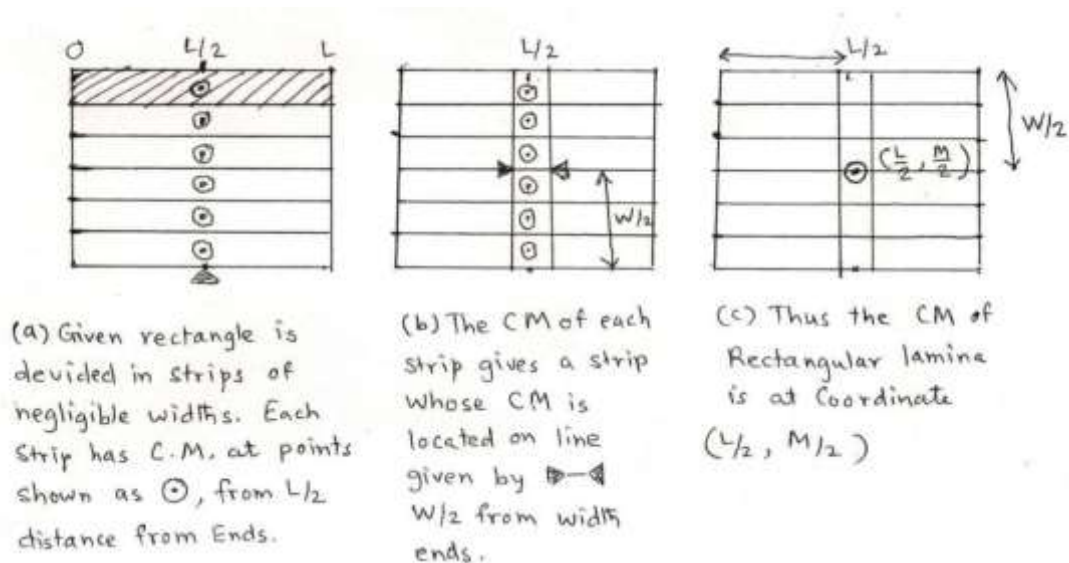 O L/2 L
L/2
W/2
L/2
W/2
(L/2, M/2)
(a) Given rectangle is
devided in strips of
negligible widths. Each
Strip has C.M. at points
shown as ⊙, from L/2
distance from Ends.
(b) The CM of each
strip gives a strip
whose CM is
located on line
given by ▶–◀
W/2 from width
ends.
(c) Thus the CM of
Rectangular lamina
is at Coordinate
(L/2, M/2)